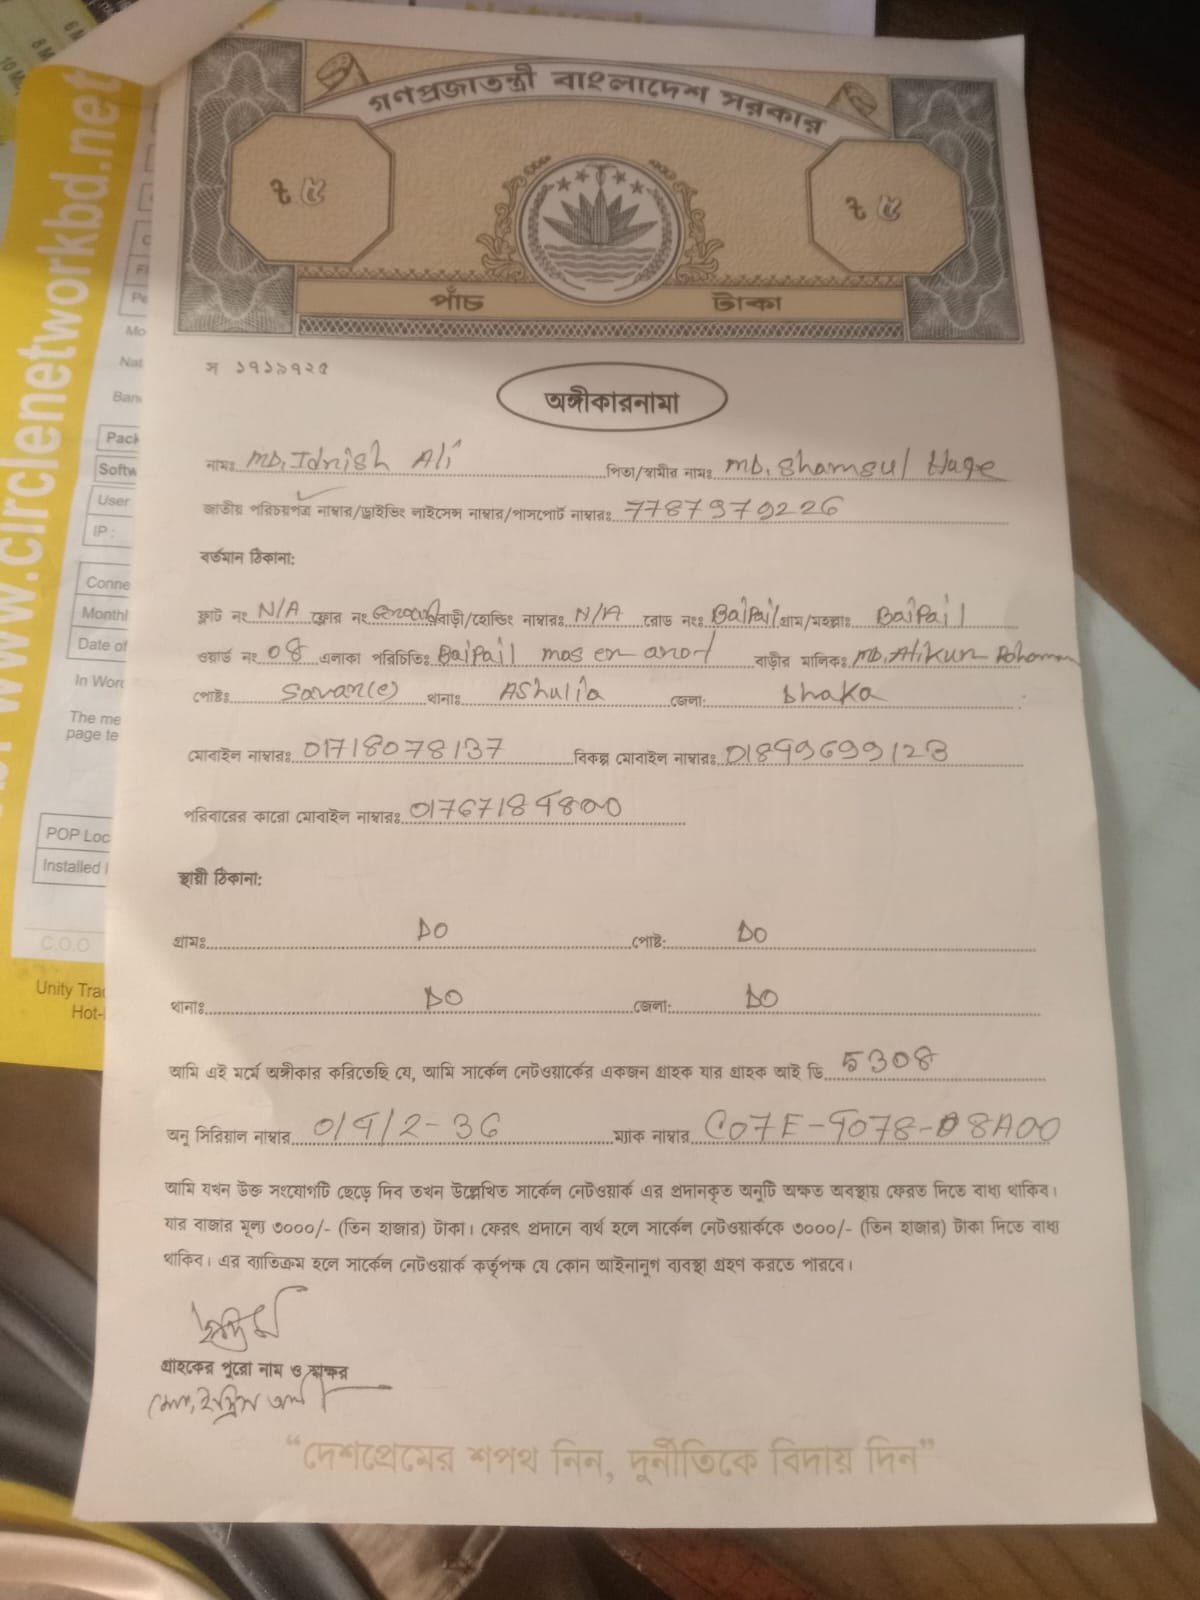 গণপ্রজাতন্ত্রী বাংলাদেশ সরকার
৳ ৫
৳ ৫
পাঁচ টাকা
স ১৭১৯৭২৫
অঙ্গীকারনামা
নামঃ MD, Idrish Ali পিতা/স্বামীর নামঃ MD. Shamsul Haqe
জাতীয় পরিচয়পত্র নাম্বার/ড্রাইভিং লাইসেন্স নাম্বার/পাসপোর্ট নাম্বারঃ 7787979226
বর্তমান ঠিকানা:
ফ্লাট নং N/A ফ্লোর নং বাড়ী/হোল্ডিং নাম্বারঃ N/A রোড নংঃ BaiPail গ্রাম/মহল্লাঃ BaiPail
ওয়ার্ড নং 08 এলাকা পরিচিতিঃ BaiPail বাড়ীর মালিকঃ MD, Atikur Rohoman
পোষ্টঃ থানাঃ AShulia জেলা: Dhaka
মোবাইল নাম্বারঃ 01718078137 বিকল্প মোবাইল নাম্বারঃ 01849699123
পরিবারের কারো মোবাইল নাম্বারঃ 01767184800
স্থায়ী ঠিকানা:
গ্রামঃ DO পোষ্ট: DO
থানাঃ DO জেলা: DO
আমি এই মর্মে অঙ্গীকার করিতেছি যে, আমি সার্কেল নেটওয়ার্কের একজন গ্রাহক যার গ্রাহক আই ডি 5308
অনু সিরিয়াল নাম্বার 01412-36 ম্যাক নাম্বার C07E-4078-D8A00
আমি যখন উক্ত সংযোগটি ছেড়ে দিব তখন উল্লেখিত সার্কেল নেটওয়ার্ক এর প্রদানকৃত অনুটি অক্ষত অবস্থায় ফেরত দিতে বাধ্য থাকিব।
যার বাজার মূল্য ৩০০০/- (তিন হাজার) টাকা। ফেরৎ প্রদানে ব্যর্থ হলে সার্কেল নেটওয়ার্ককে ৩০০০/- (তিন হাজার) টাকা দিতে বাধ্য
থাকিব। এর ব্যাতিক্রম হলে সার্কেল নেটওয়ার্ক কর্তৃপক্ষ যে কোন আইনানুগ ব্যবস্থা গ্রহণ করতে পারবে।
গ্রাহকের পুরো নাম ও স্বাক্ষর
মোঃ ইদ্রিস আলী
“দেশপ্রেমের শপথ নিন, দুর্নীতিকে বিদায় দিন”
www.circlenetworkbd.net
Pack
Softw
User
IP :
Conne
Monthl
Date of
In Word
The me
page te
POP Loc
Installed
C.O.O
Unity Trad
Hot-